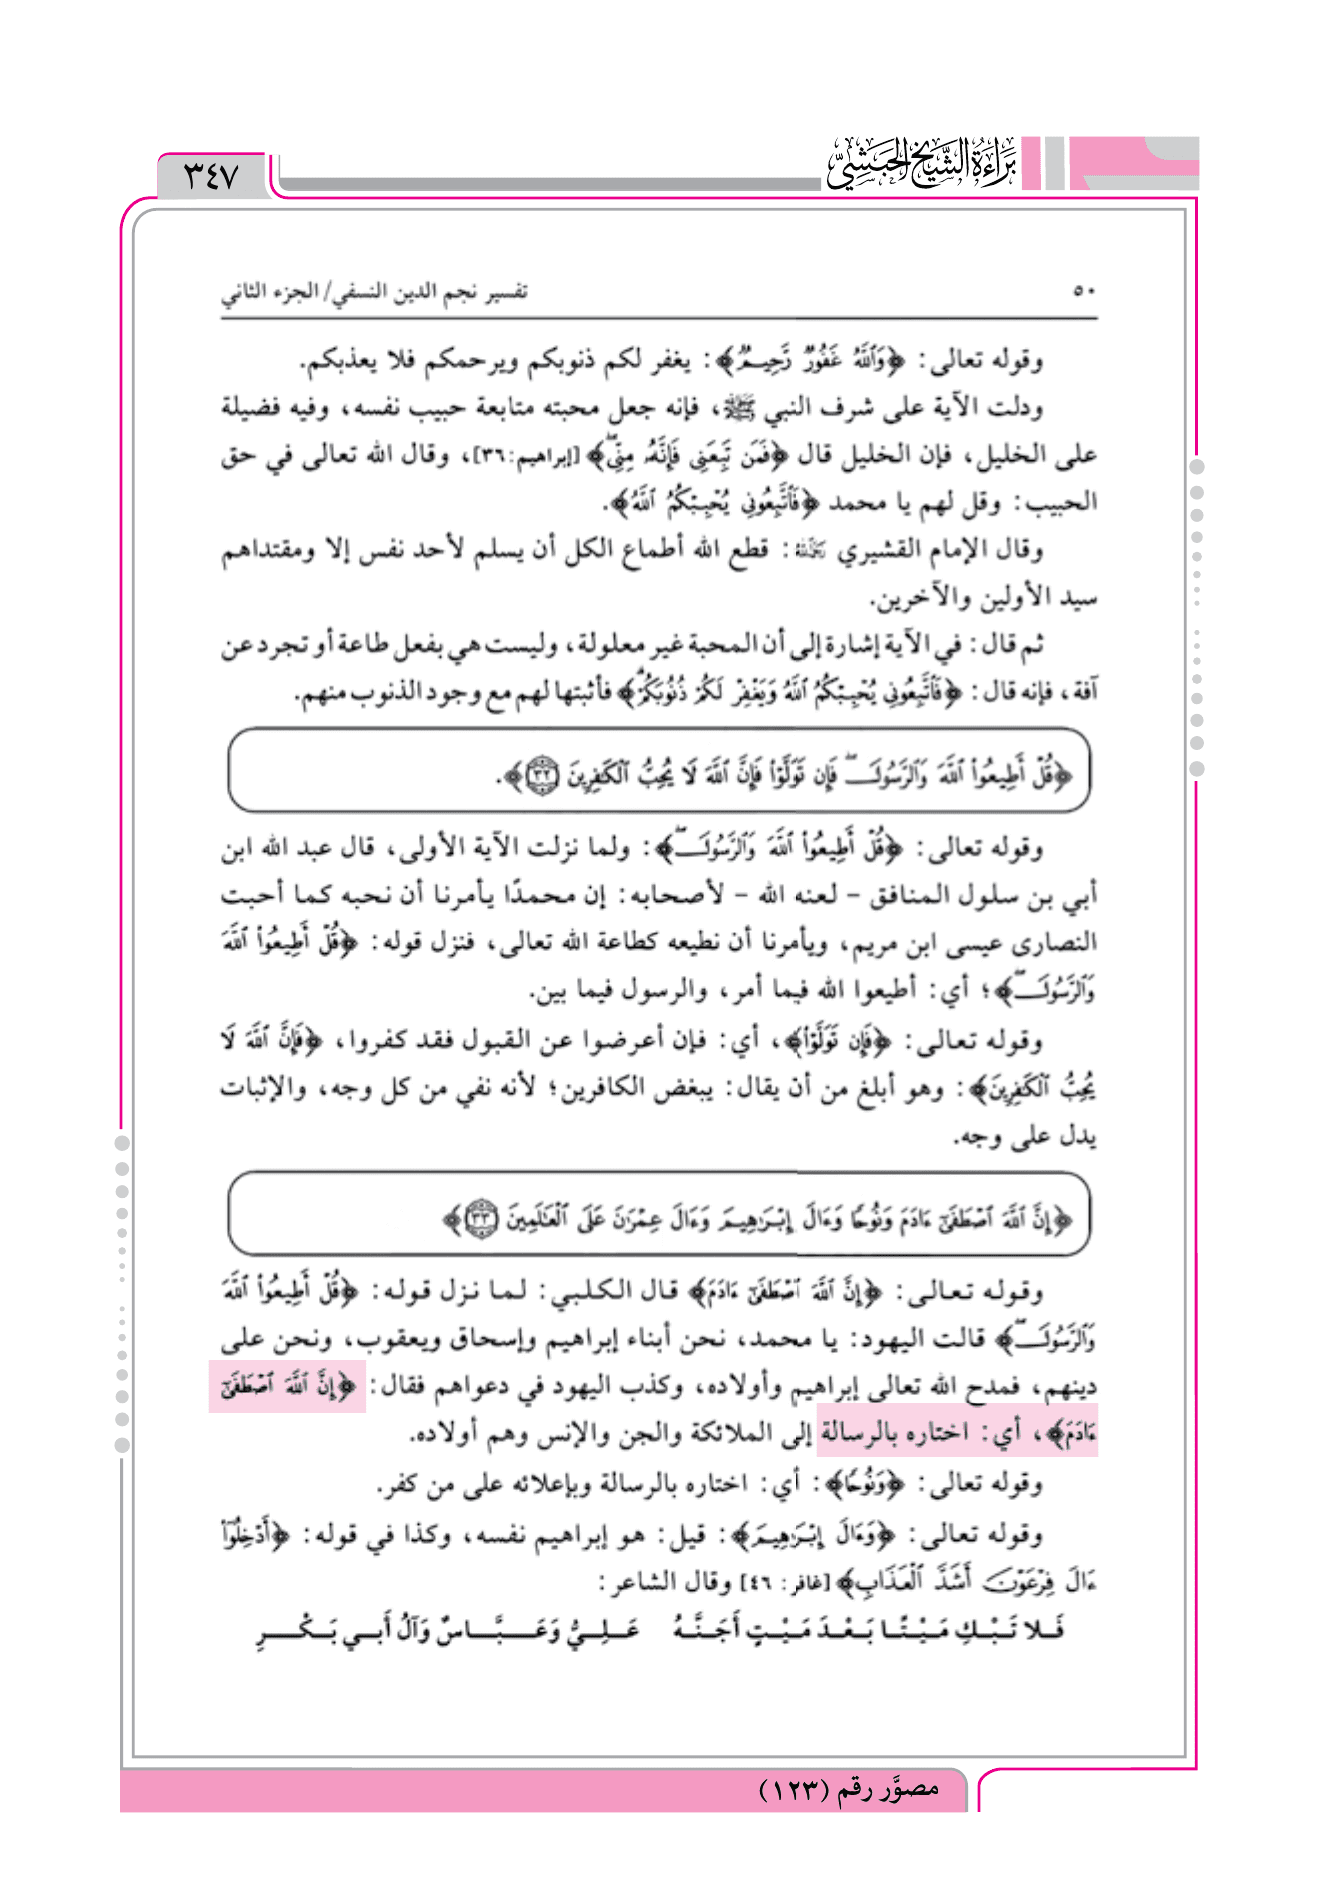 براءة الشيخ الحبشي
٣٤٧
٥٠
تفسير نجم الدين النسفي/ الجزء الثاني
وقوله تعالى: ﴿وَٱللَّهُ غَفُورٌ رَّحِيمٌ﴾: يغفر لكم ذنوبكم ويرحمكم فلا يعذبكم.
ودلت الآية على شرف النبي ﷺ، فإنه جعل محبته متابعة حبيب نفسه، وفيه فضيلة
على الخليل، فإن الخليل قال ﴿فَمَن تَبِعَنِى فَإِنَّهُۥ مِنِّىۖ﴾ [إبراهيم: ٣٦]، وقال الله تعالى في حق
الحبيب: وقل لهم يا محمد ﴿فَٱتَّبِعُونِى يُحْبِبْكُمُ ٱللَّهُ﴾.
وقال الإمام القشيري رحمه الله: قطع الله أطماع الكل أن يسلم لأحد نفس إلا ومقتداهم
سيد الأولين والآخرين.
ثم قال: في الآية إشارة إلى أن المحبة غير معلولة، وليست هي بفعل طاعة أو تجرد عن
آفة، فإنه قال: ﴿فَٱتَّبِعُونِى يُحْبِبْكُمُ ٱللَّهُ وَيَغْفِرْ لَكُمْ ذُنُوبَكُمْۗ﴾ فأثبتها لهم مع وجود الذنوب منهم.
﴿قُلْ أَطِيعُوا۟ ٱللَّهَ وَٱلرَّسُولَۖ فَإِن تَوَلَّوْا۟ فَإِنَّ ٱللَّهَ لَا يُحِبُّ ٱلْكَٰفِرِينَ ٣٢﴾.
وقوله تعالى: ﴿قُلْ أَطِيعُوا۟ ٱللَّهَ وَٱلرَّسُولَۖ﴾: ولما نزلت الآية الأولى، قال عبد الله ابن
أبي بن سلول المنافق - لعنه الله - لأصحابه: إن محمدًا يأمرنا أن نحبه كما أحبت
النصارى عيسى ابن مريم، ويأمرنا أن نطيعه كطاعة الله تعالى، فنزل قوله: ﴿قُلْ أَطِيعُوا۟ ٱللَّهَ
وَٱلرَّسُولَۖ﴾؛ أي: أطيعوا الله فيما أمر، والرسول فيما بين.
وقوله تعالى: ﴿فَإِن تَوَلَّوْا۟﴾، أي: فإن أعرضوا عن القبول فقد كفروا، ﴿فَإِنَّ ٱللَّهَ لَا
يُحِبُّ ٱلْكَٰفِرِينَ﴾: وهو أبلغ من أن يقال: يبغض الكافرين؛ لأنه نفي من كل وجه، والإثبات
يدل على وجه.
﴿إِنَّ ٱللَّهَ ٱصْطَفَىٰٓ ءَادَمَ وَنُوحًا وَءَالَ إِبْرَٰهِيمَ وَءَالَ عِمْرَٰنَ عَلَى ٱلْعَٰلَمِينَ ٣٣﴾
وقوله تعالى: ﴿إِنَّ ٱللَّهَ ٱصْطَفَىٰٓ ءَادَمَ﴾ قال الكلبي: لما نزل قوله: ﴿قُلْ أَطِيعُوا۟ ٱللَّهَ
وَٱلرَّسُولَۖ﴾ قالت اليهود: يا محمد، نحن أبناء إبراهيم وإسحاق ويعقوب، ونحن على
دينهم، فمدح الله تعالى إبراهيم وأولاده، وكذب اليهود في دعواهم فقال: ﴿إِنَّ ٱللَّهَ ٱصْطَفَىٰٓ
ءَادَمَ﴾، أي: اختاره بالرسالة إلى الملائكة والجن والإنس وهم أولاده.
وقوله تعالى: ﴿وَنُوحًا﴾: أي: اختاره بالرسالة وبإعلائه على من كفر.
وقوله تعالى: ﴿وَءَالَ إِبْرَٰهِيمَ﴾: قيل: هو إبراهيم نفسه، وكذا في قوله: ﴿أَدْخِلُوٓا۟
ءَالَ فِرْعَوْنَ أَشَدَّ ٱلْعَذَابِ﴾ [غافر: ٤٦] وقال الشاعر:
فَلا تَبْكِ مَيْتًا بَعْدَ مَيْتٍ أَجَنَّهُ عَلِيُّ وَعَبَّاسٌ وَآلُ أَبي بَكْرِ
مصوَّر رقم (١٢٣)